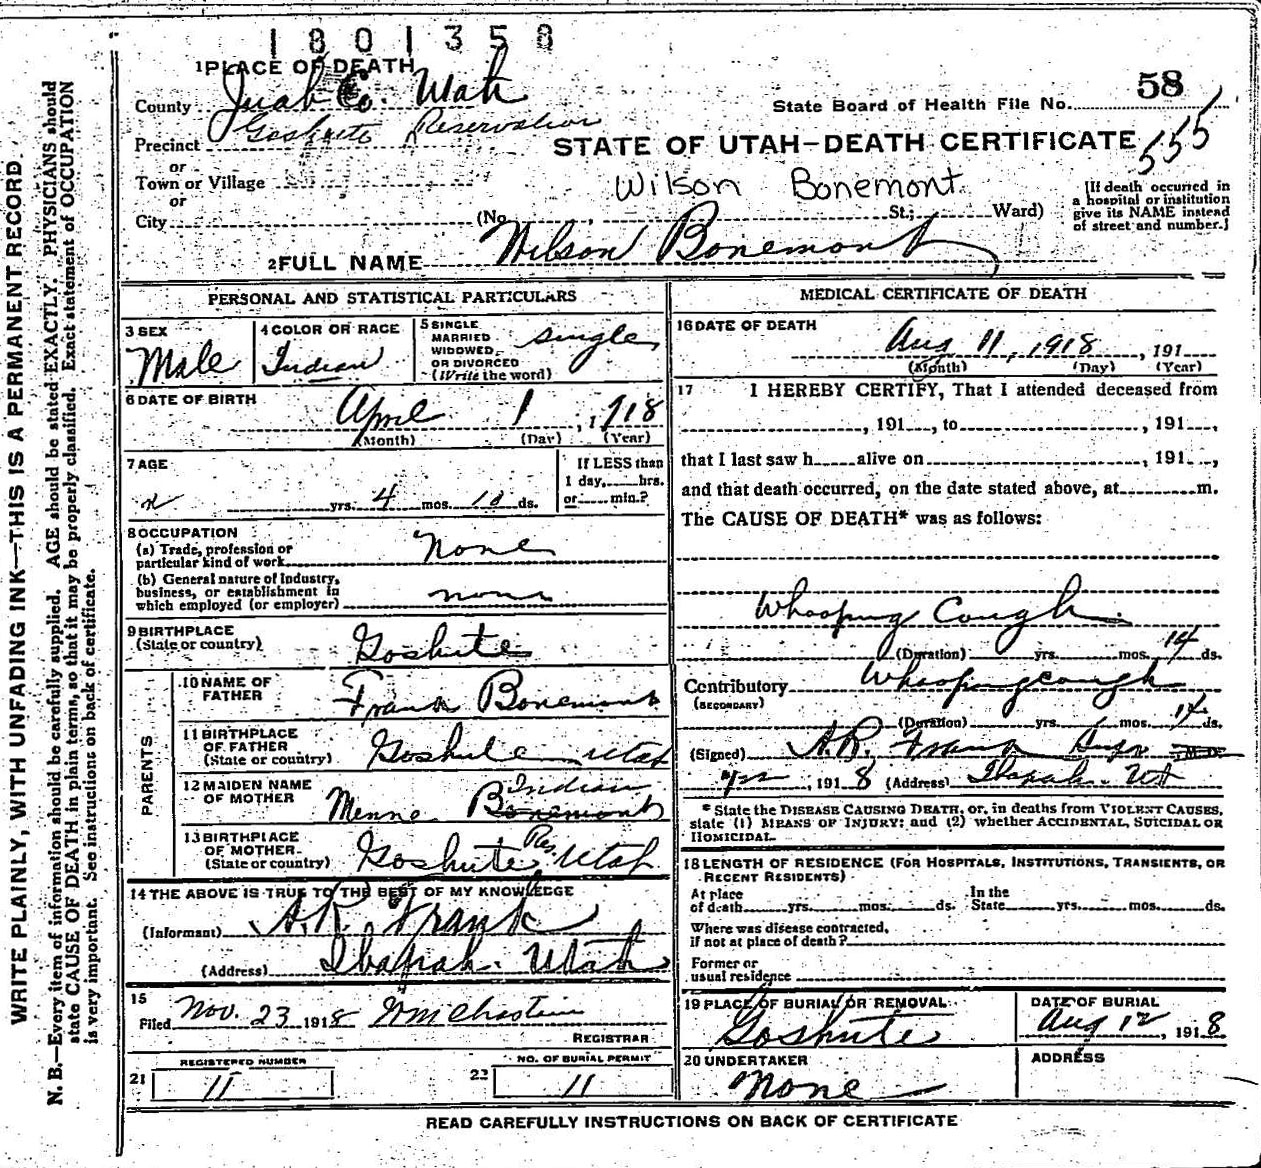 1801358
1 PLACE OF DEATH
County Juab Co. Utah
Goshute Reservation
Precinct
or
Town or Village
or
City (No. St.; Ward)
58
State Board of Health File No.
555
STATE OF UTAH—DEATH CERTIFICATE
Wilson Bonemont
[If death occurred in
a hospital or institution
give its NAME instead
of street and number.]
2 FULL NAME Wilson Bonemont
PERSONAL AND STATISTICAL PARTICULARS
3 SEX
Male
4 COLOR OR RACE
Indian
5 SINGLE
MARRIED
WIDOWED
OR DIVORCED
(Write the word)
single
6 DATE OF BIRTH
April 1, 1918
(Month) (Day) (Year)
7 AGE
yrs. 4 mos. 10 ds.
If LESS than
1 day, hrs.
or min.?
8 OCCUPATION
(a) Trade, profession or
particular kind of work
None
(b) General nature of Industry,
business, or establishment in
which employed (or employer)
none
9 BIRTHPLACE
(State or country)
Goshute
PARENTS
10 NAME OF
FATHER
Frank Bonemont
11 BIRTHPLACE
OF FATHER
(State or country)
Goshute Utah
12 MAIDEN NAME
OF MOTHER
Indian
Menne Bonemont
13 BIRTHPLACE
OF MOTHER
(State or country)
Goshute Res. Utah
14 THE ABOVE IS TRUE TO THE BEST OF MY KNOWLEDGE
(Informant) A.R. Frank
(Address) Ibapah. Utah
15
Filed Nov. 23 1918 Wm Chastain
REGISTRAR
REGISTERED NUMBER
21 11
NO. OF BURIAL PERMIT
22 11
MEDICAL CERTIFICATE OF DEATH
16 DATE OF DEATH
Aug 11, 1918, 191
(Month) (Day) (Year)
17 I HEREBY CERTIFY, That I attended deceased from
, 191 , to , 191 ,
that I last saw h alive on , 191 ,
and that death occurred, on the date stated above, at m.
The CAUSE OF DEATH* was as follows:
Whooping Cough
(Duration) yrs. mos. 14 ds.
Contributory Whoopingcough
(SECONDARY)
(Duration) yrs. mos. 14 ds.
(Signed) A.R. Frank Supt M.D.
, 1918 (Address) Ibapah. Ut
* State the DISEASE CAUSING DEATH, or, in deaths from VIOLENT CAUSES,
state (1) MEANS OF INJURY; and (2) whether ACCIDENTAL, SUICIDAL OR
HOMICIDAL.
18 LENGTH OF RESIDENCE (FOR HOSPITALS, INSTITUTIONS, TRANSIENTS, OR
RECENT RESIDENTS)
At place
of death yrs. mos. ds.
In the
State yrs. mos. ds.
Where was disease contracted,
if not at place of death?
Former or
usual residence
19 PLACE OF BURIAL OR REMOVAL
Goshute
DATE OF BURIAL
Aug 12, 1918
20 UNDERTAKER
None
ADDRESS
READ CAREFULLY INSTRUCTIONS ON BACK OF CERTIFICATE
WRITE PLAINLY, WITH UNFADING INK—THIS IS A PERMANENT RECORD
N. B.—Every item of information should be carefully supplied. AGE should be stated EXACTLY. PHYSICIANS should
state CAUSE OF DEATH in plain terms, so that it may be properly classified. Exact statement of OCCUPATION
is very important. See instructions on back of certificate.